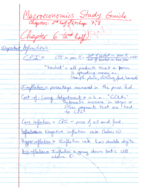 Macroeconomics Study Guide
Chapter 6 (2nd half)
Important Definitions
C.P.I. =
"market" = all products that a person
is spending money on
Inflation = percentage increase in the price level
Cost of Living Adjustments = a.k.a. "COLA"
Automatic increase in wages or
other payments that are tied
to CPI
Core inflation = CPI - price of oil and food
Deflation = Negative inflation rate (below 0)
Hyperinflation = Inflation rate hits double digits
Disinflation = Inflation is going down but is still
above 0